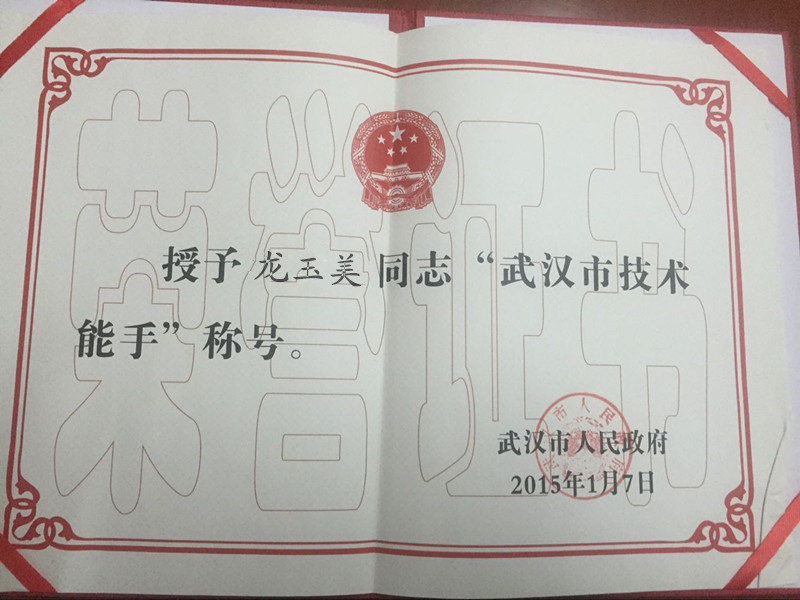 荣誉证书
授予龙玉美同志“武汉市技术
能手”称号。
武汉市人民政府
2015年1月7日